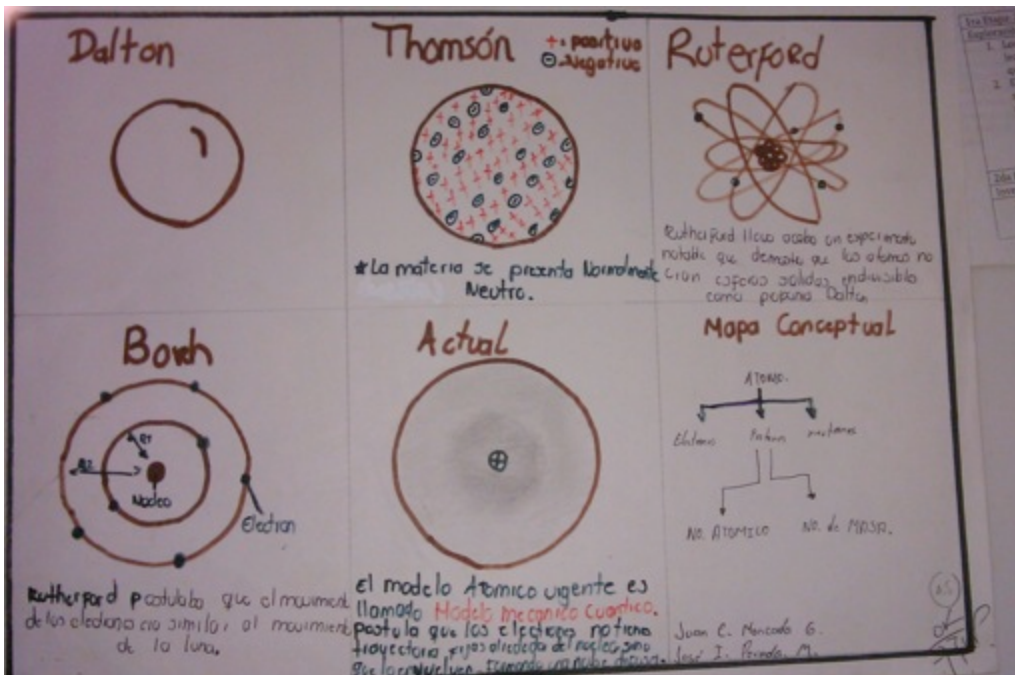 Dalton
Thomsón
+ = positivo
⊖ = Negativo
Ruterford
★ La materia se presenta Normalmente
Neutro.
Rutherford llevo acabo un experimento
notable que demostro que los atomos no
eran esferas solidas indivisible
como proponia Dalton
Borh
R1
R2
Nucleo
Electron
Rutherford postulaba que el movimient
de los electrones era similar al movimient
de la luna.
Actual
El modelo Atomico vigente es
llamado Modelo mecanico Cuantico.
Postula que los electrones no tiene
trayectoria fijas alrededor del nucleo sino
que la envuelven formando una nube difusa.
Mapa Conceptual
ATOMO.
NO. ATOMICO
NO. de MASA.
Juan C. Moncada G.
José I. M.
1ra Etapa
1.
2.